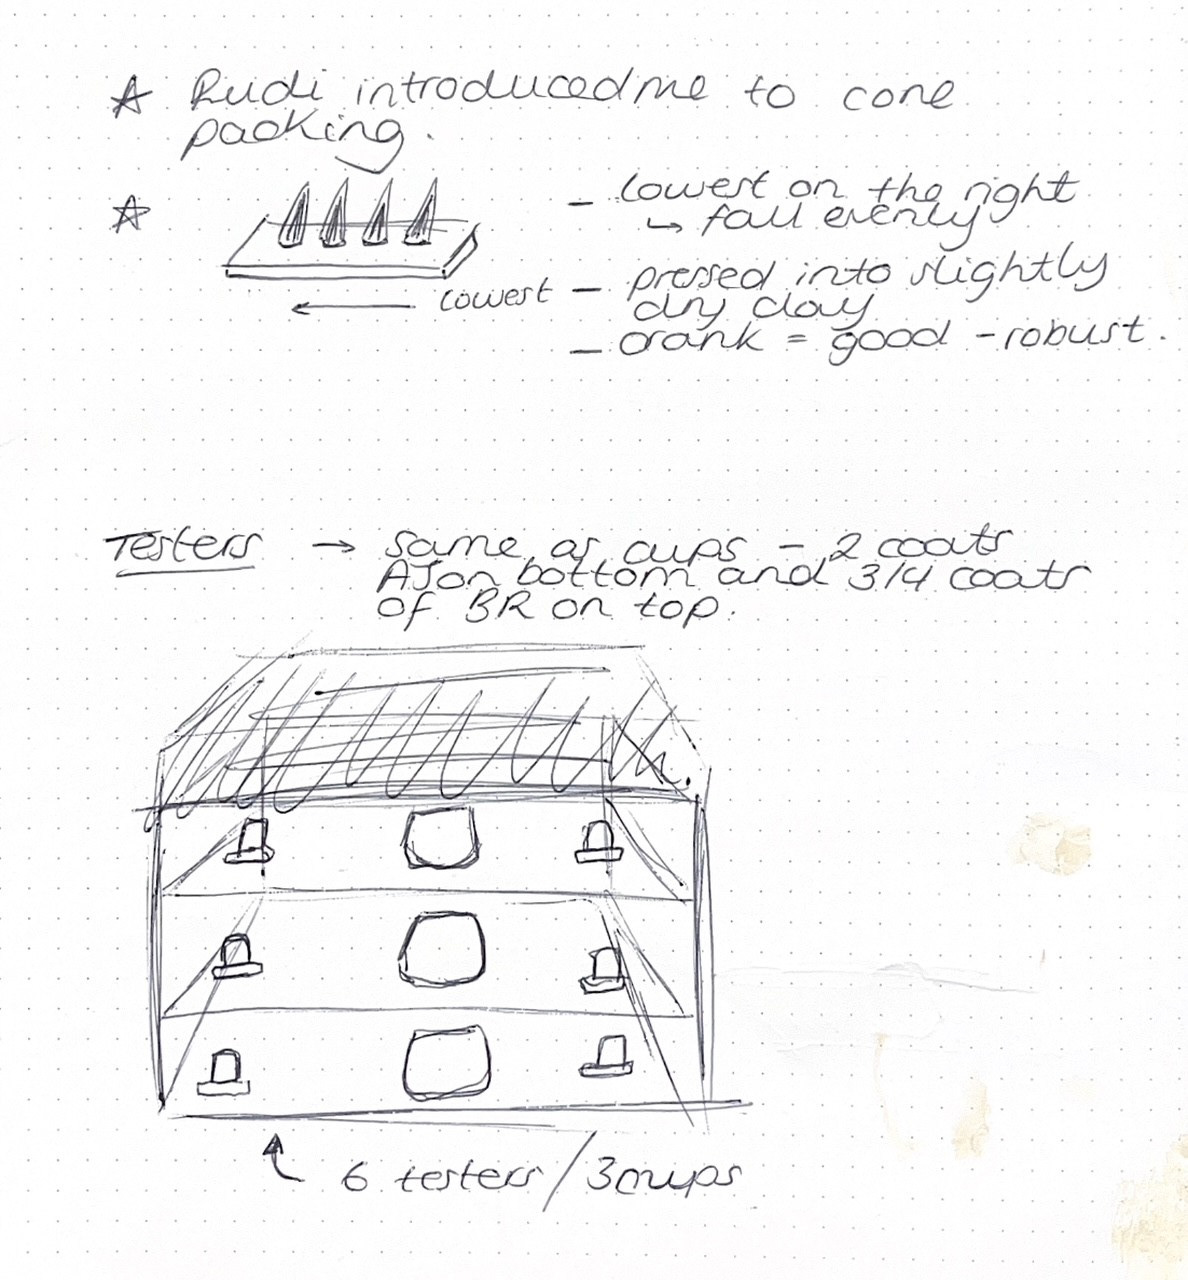 ☆ Rudi introduced me to cone
packing.
☆
– lowest on the right
↳ fall evenly
← lowest
– pressed into slightly
dry clay
– crank = good – robust.
Testers → same as cups – 2 coats
AJ on bottom and 3/4 coats
of BR on top.
6 testers / 3 cups